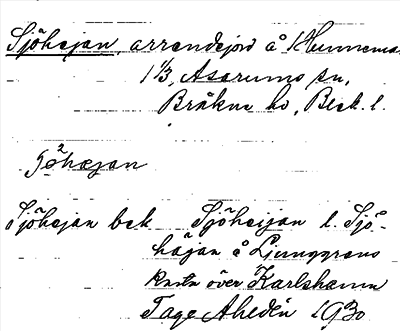 Sjöhejan, arrendejord å 1 Hunnema
1 1/3, Asarums sn,
Bräkne hd, Blek. l.
Sjöhejan bek. Sjöheijan l. Sjö-
höjan å Ljunggrens
karta över Karlshamn
Tage Ahldén 1930